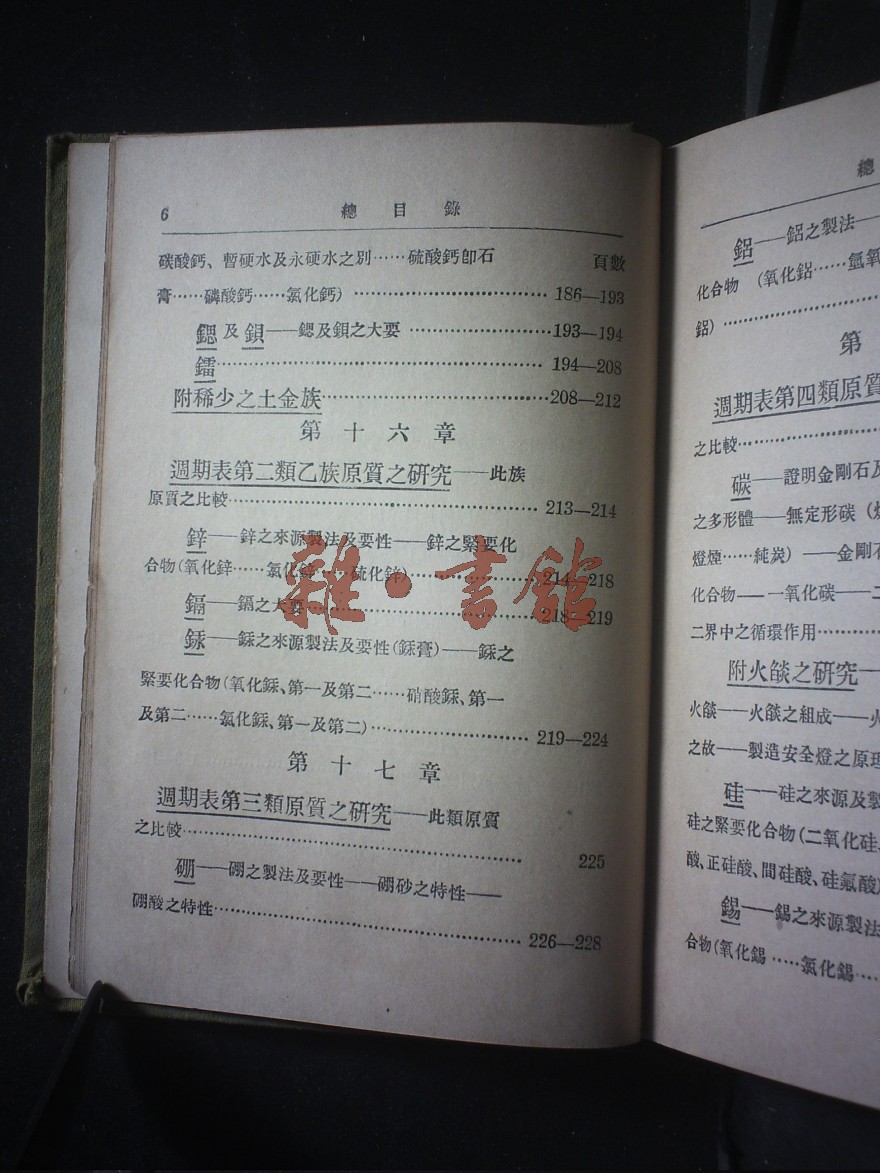 6 總目錄
頁數
碳酸鈣、暫硬水及永硬水之別……硫酸鈣卽石
膏……磷酸鈣……氯化鈣)……186—193
鍶及鋇——鍶及鋇之大要……193—194
鐳……194—208
附稀少之土金族……208—212
第十六章
週期表第二類乙族原質之研究——此族
原質之比較……213—214
鋅——鋅之來源製法及要性——鋅之緊要化
合物(氧化鋅……氯化鋅……硫化鋅)……214—218
鎘——鎘之大要……218—219
銾——銾之來源製法及要性(銾膏)——銾之
緊要化合物(氧化銾、第一及第二……硝酸銾、第一
及第二……氯化銾、第一及第二)……219—224
第十七章
週期表第三類原質之研究——此類原質
之比較……225
硼——硼之製法及要性——硼砂之特性——
硼酸之特性……226—228
雜·書館
總
鋁——鋁之製法——
化合物 (氧化鋁……氫氧
鋁)……
第
週期表第四類原質
之比較……
碳——證明金剛石及
之多形體——無定形碳(
燈煙……純炭)——金剛石
化合物——一氧化碳——二
二界中之循環作用……
附火燄之研究——
火燄——火燄之組成——火
之故——製造安全燈之原理
硅——硅之來源及製
硅之緊要化合物(二氧化硅、
酸、正硅酸、間硅酸、硅氟酸)
錫——錫之來源製法
合物(氧化錫……氯化錫……